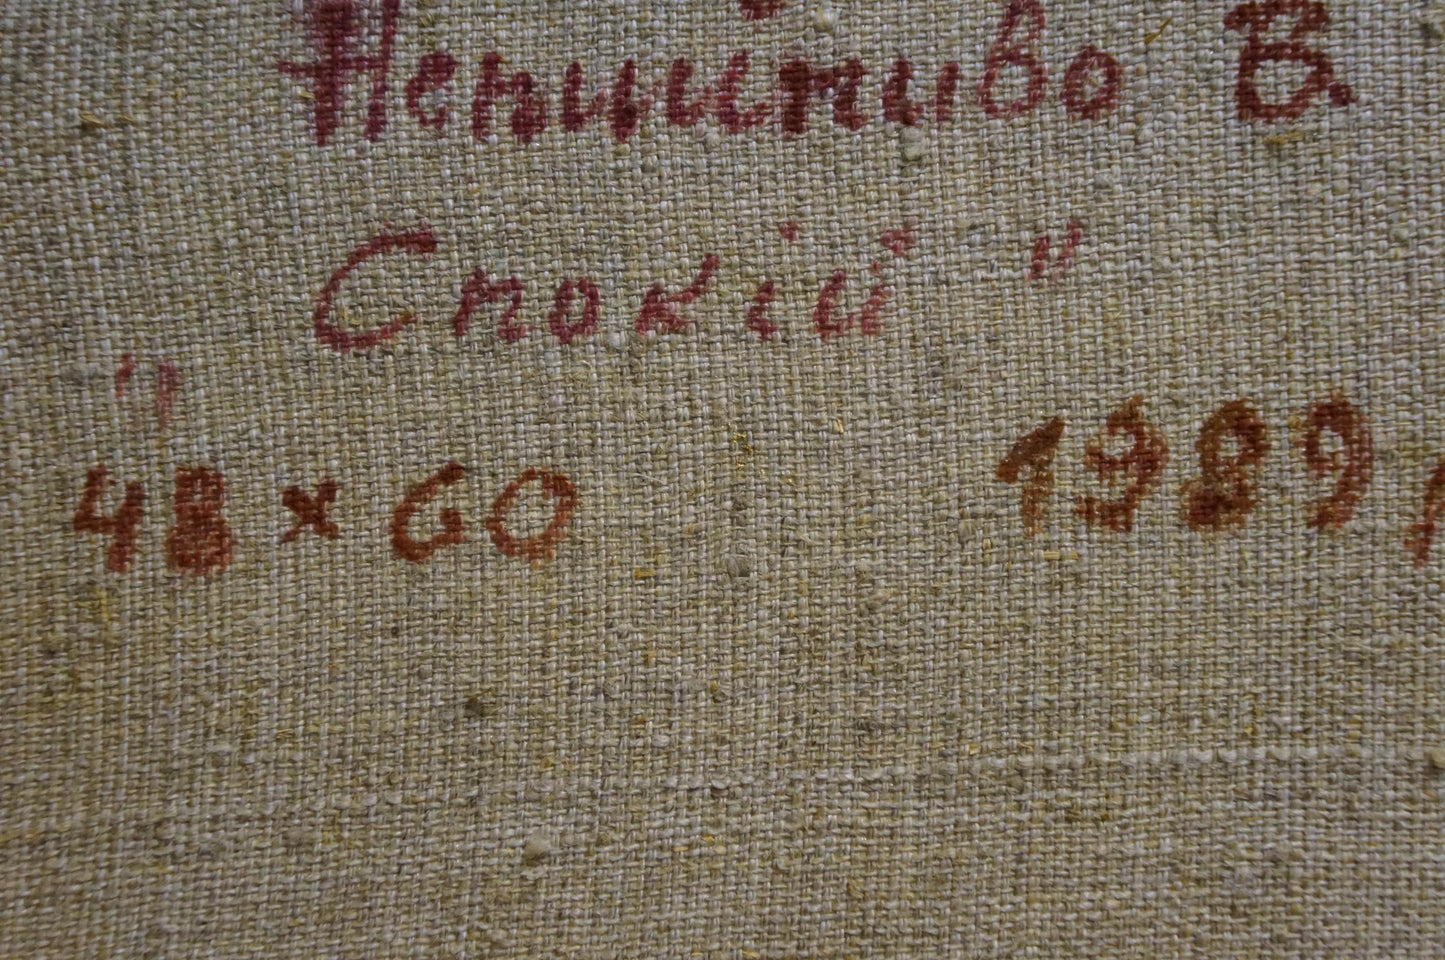 Непийпиво В.
„Спокій"
48×60 1989р